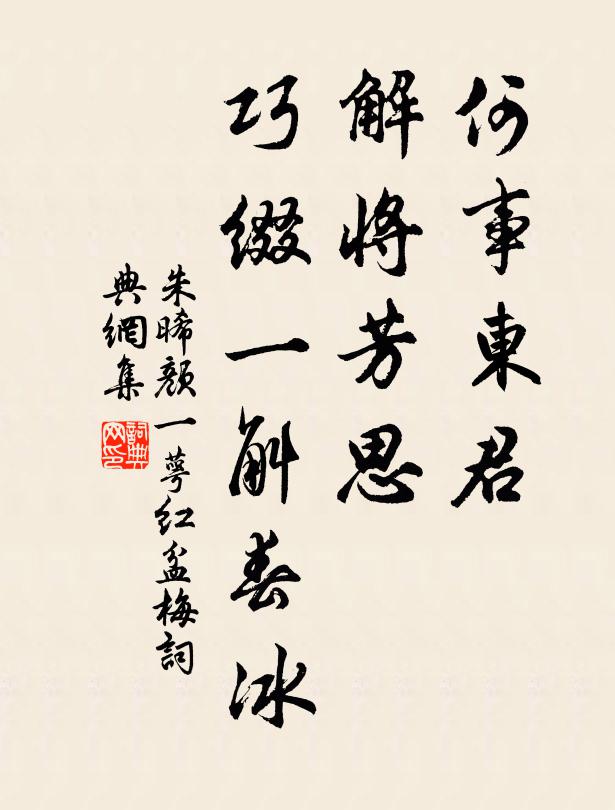 何事東君
解將芳思
巧綴一斛春冰
朱晞顏一萼红盆梅詞
典網集
詞典網印